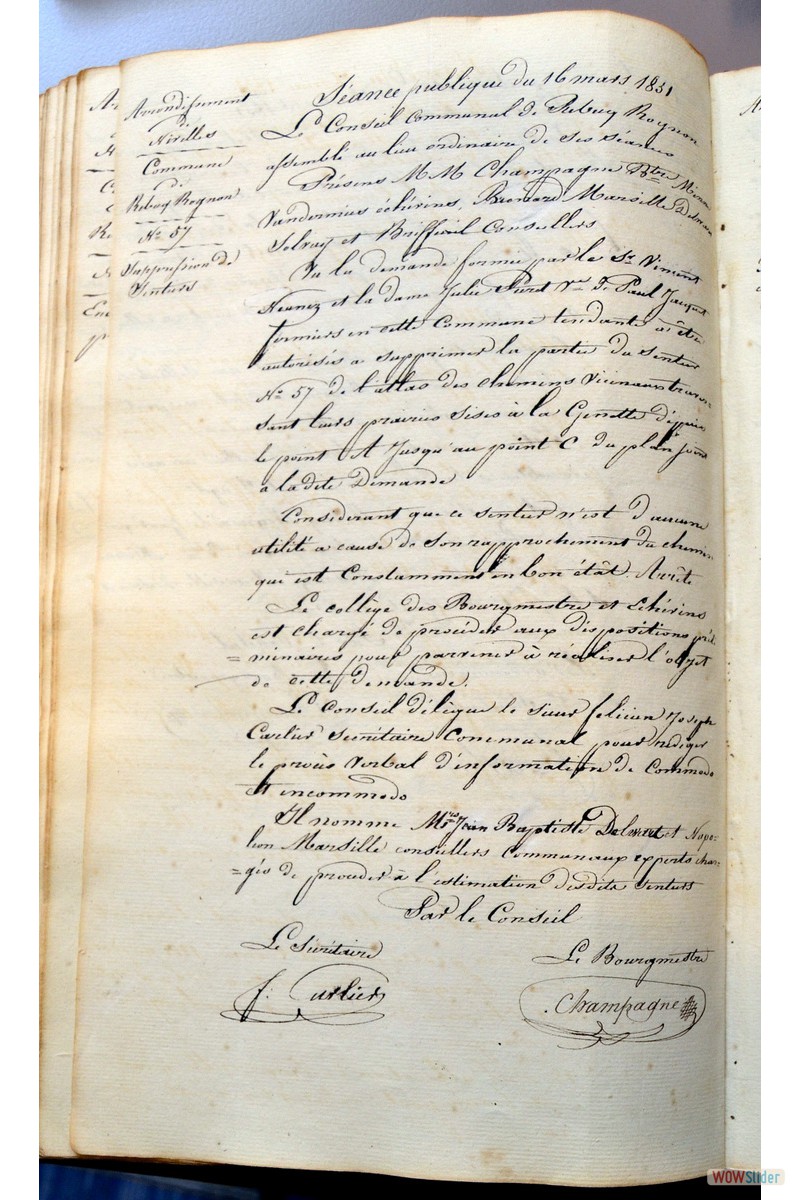 Arrondissement
de
Nivelles
Commune
de
Rebecq Rognon
N° 57
Suppression de
Sentiers
Séance publique du 16 mars 1851
Le Conseil Communal de Rebecq Rognon
assemblé au lieu ordinaire de ses séances
Présens MM Champagne Btre Minon
Vandernius échevins, Marsille Delmoe
Solvay et Briffeuil Conseillers
Vu la demande formée par le Sr Vincent
et la dame Julie Piret Ve Paul Jacquet
fermiers en cette Commune tendante à être
autorisés a supprimer la partie du sentier
N° 57 de l'atlas des chemins Vicinaux traver=
sant leurs prairies sises à la Genette dépuis
le point A Jusqu'au point C du plan joint
a la dete Demande
Considerant que ce sentier n'est d'aucune
utilité a cause de son rapprochement du chemin
qui est Constamment en bon état. Arrête
Le collège des Bourgmestre et Echevins
est chargé de procéder aux dispositions préli
=minaires pour parvenir à réaliser l'objet
de cette demande.
Le Conseil délègue le sieur felicien Joseph
Carlier Secrétaire Communal pour rédiger
le procès verbal d'information de Commodo
et incommodo
Il nomme Mrs Jean Baptiste et Napo=
léon Marsille conseillers Communaux experts char=
=gés de procéder à l'estimation desdits sentiers
Par le Conseil
Le Secrétaire
Le Bourgmestre
f: Carlier
Champagne
WOWSlider